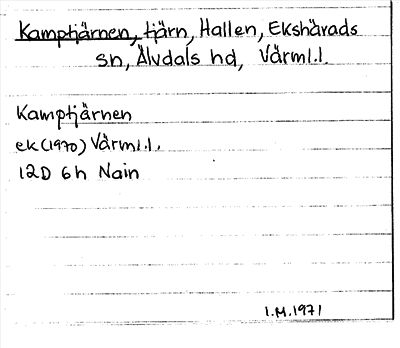 Kamptjärnen, tjärn, Hallen, Ekshärads
sn, Älvdals hd, Värml.l.
Kamptjärnen
ek (1970) Värml.l.
12D 6h Nain
I.M.1971